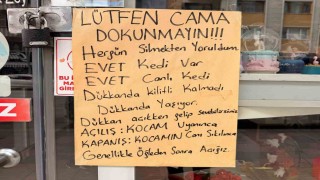 LÜTFEN CAMA
DOKUNMAYIN!!!
Hergün Silmekten Yoruldum.
EVET Kedi Var
EVET Canlı Kedi
Dükkanda kilitli Kalmadı
Dükkanda Yaşıyor.
Dükkan açıkken gelip
AÇILIŞ: KOCAM Uyanınca
KAPANIŞ: KOCAMIN Canı Sıkılınca
Genellikle Öğleden Sonra Açığız.